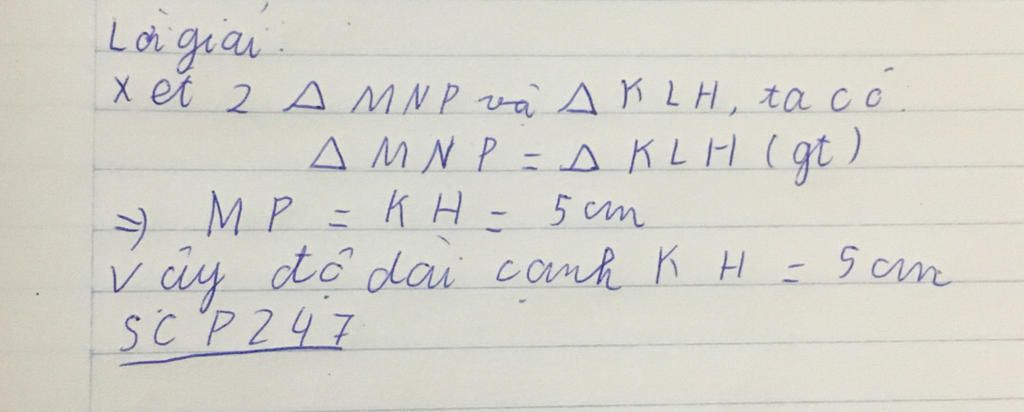 Lời giải.
Xét 2 Δ MNP và Δ KLH, ta có.
Δ MNP = Δ KLH (gt)
⇒ MP = KH = 5 cm
Vậy độ dài cạnh KH = 5 cm
SCP247